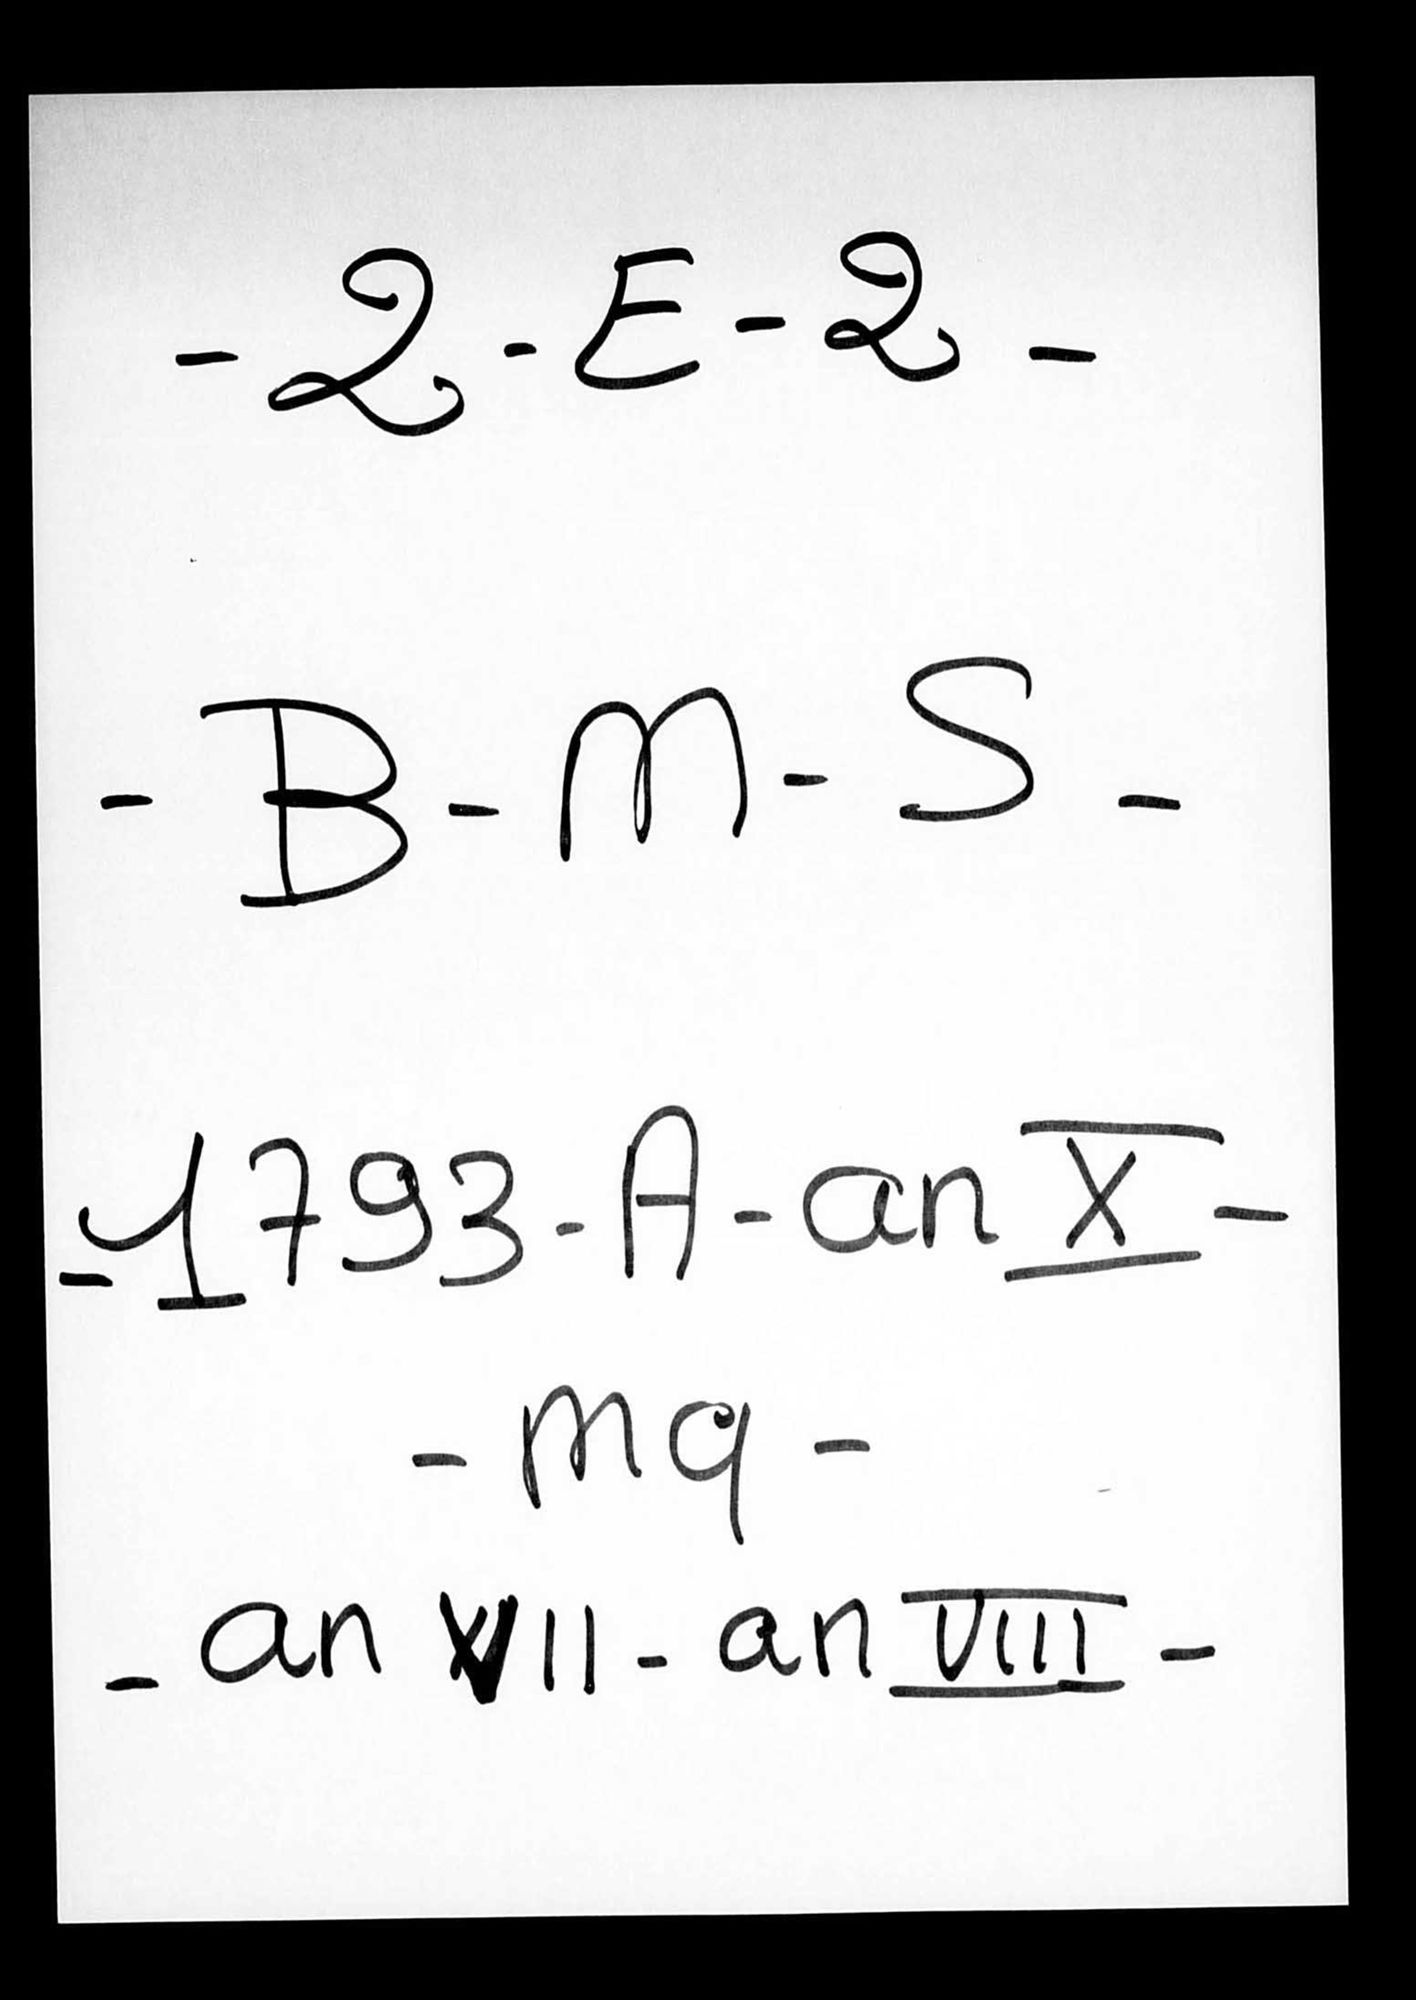 - 2 - E - 2 -
- B - M - S -
- 1793 - A - an X -
- mq -
- an VII - an VIII -